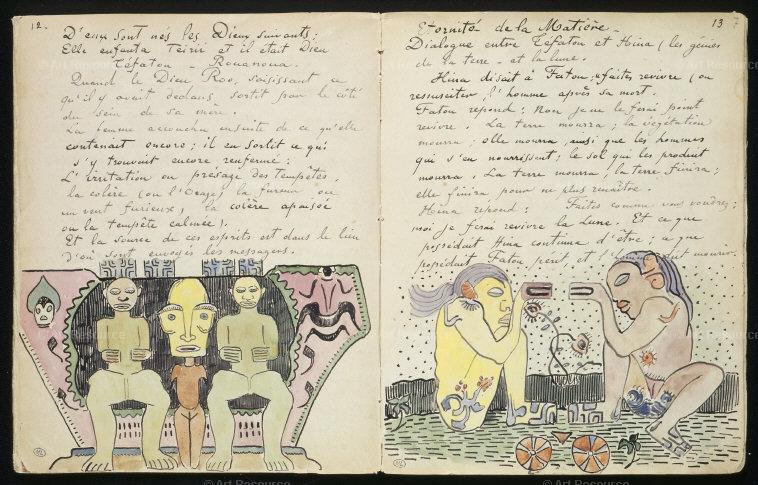 12.
D'eux sont nés les Dieux suivants:
Elle enfanta Teirii et il était Dieu
Téfatou - Rouanoua.
Quand le Dieu Roo, saisissant ce
qu'il y avait dedans, sortit par le côté
du sein de sa mère.
La femme accoucha ensuite de ce qu'elle
contenait encore; il en sortit ce qui
s'y trouvait encore renfermé:
L'irritation ou présage des Tempêtes,
la colère (ou l'Orage) la fureur ou
un vent furieux, la colère apaisée
ou la tempête calmée).
Et la source de ces esprits est dans le lieu
d'où sont envoyés les messagers.
13
Eternité de la Matière -
Dialogue entre Téfatou et Hina (les génies
de la terre - et la lune.
Hina disait à Fatou: "faites revivre (ou
ressusciter) l'homme après sa mort.
Fatou repond: Non je ne le ferai point
revivre. La terre mourra; la végétation
mourra; elle mourra, ainsi que les hommes
qui s'en nourrissent; le sol qui les produit
mourra. La terre mourra, la terre finira;
elle finira pour ne plus renaître.
Hina repond: Faites comme vous voudrez;
moi je ferai revivre la Lune. Et ce que
possédait Hina continua d'être; ce que
possédait Fatou périt et l'homme dut mourir.
© Art Resource
© Art Resource